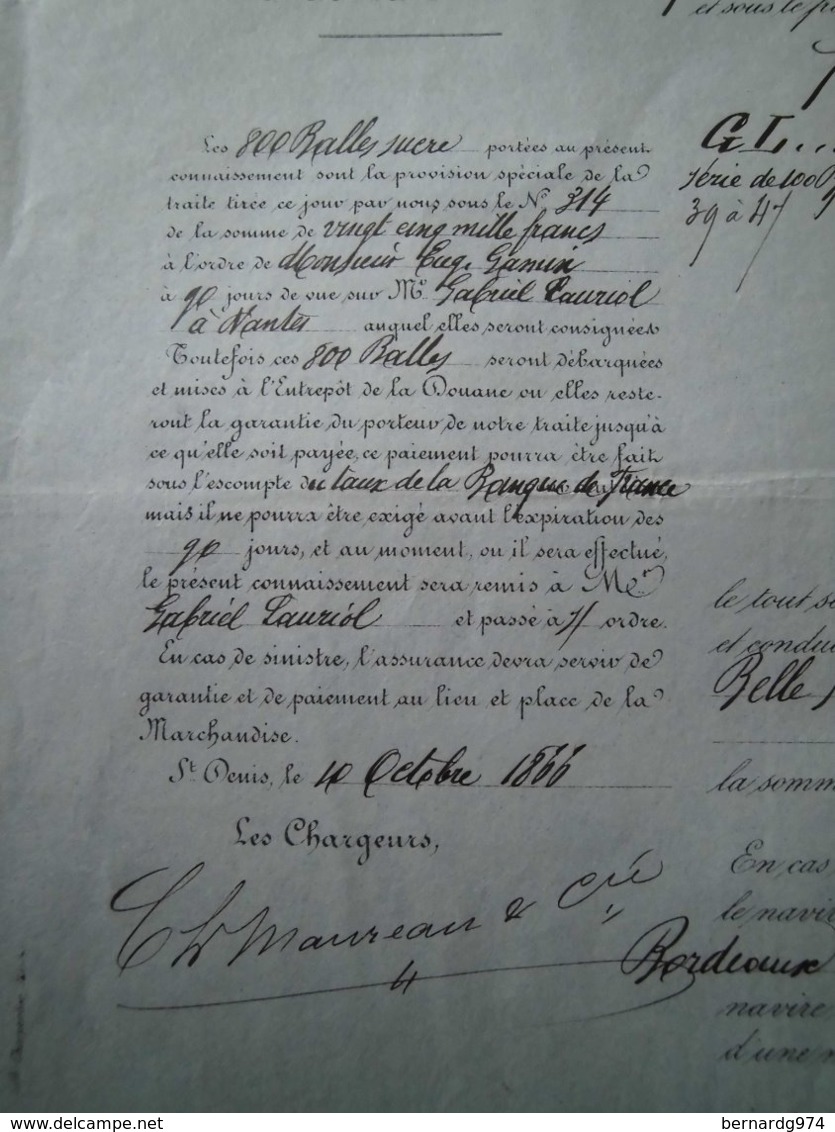 et sous le
Les 800 Balles sucre portées au présent
connaissement sont la provision spéciale de la
traite tirée ce jour par nous sous le N° 314
de la somme de vingt cinq mille francs
à l'ordre de Monsieur Eug.
à 90 jours de vue sur Mr Gabriel Lauriol
à Nantes auquel elles seront consignées
Toutefois ces 800 Balles seront débarquées
et mises à l'Entrepôt de la Douane ou elles reste-
ront la garantie du porteur de notre traite jusqu'à
ce qu'elle soit payée, ce paiement pourra être fait
sous l'escompte du taux de la Banque de France
mais il ne pourra être exigé avant l'expiration des
90 jours, et au moment, ou il sera effectué,
le présent connaissement sera remis à Mr
Gabriel Lauriol et passé à s/ ordre.
En cas de sinistre, l'assurance devra servir de
garantie et de paiement au lieu et place de la
Marchandise.
St Denis, le 10 Octobre 1866
Les Chargeurs,
Maureau & Cie
GL...
série de 100
39 à 47
le tout
et condui
Belle
la somm
En cas
le navir
Bordeaux
navire
d'une
delcampe.net
bernardg974